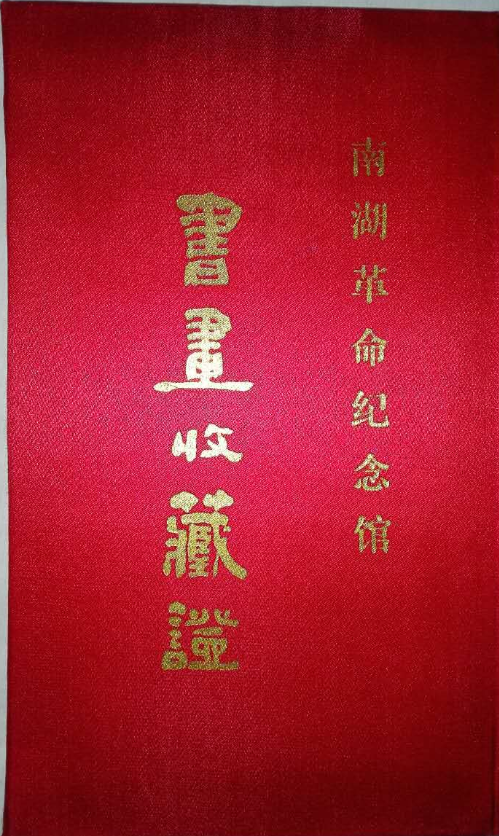 南湖革命纪念馆
書畫收藏證